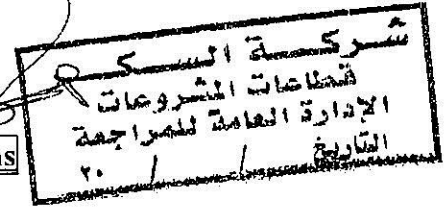 شركة السكر
قطاعات المشروعات
الإدارة العامة للمراجعة
التاريخ / / ٢٠
ns